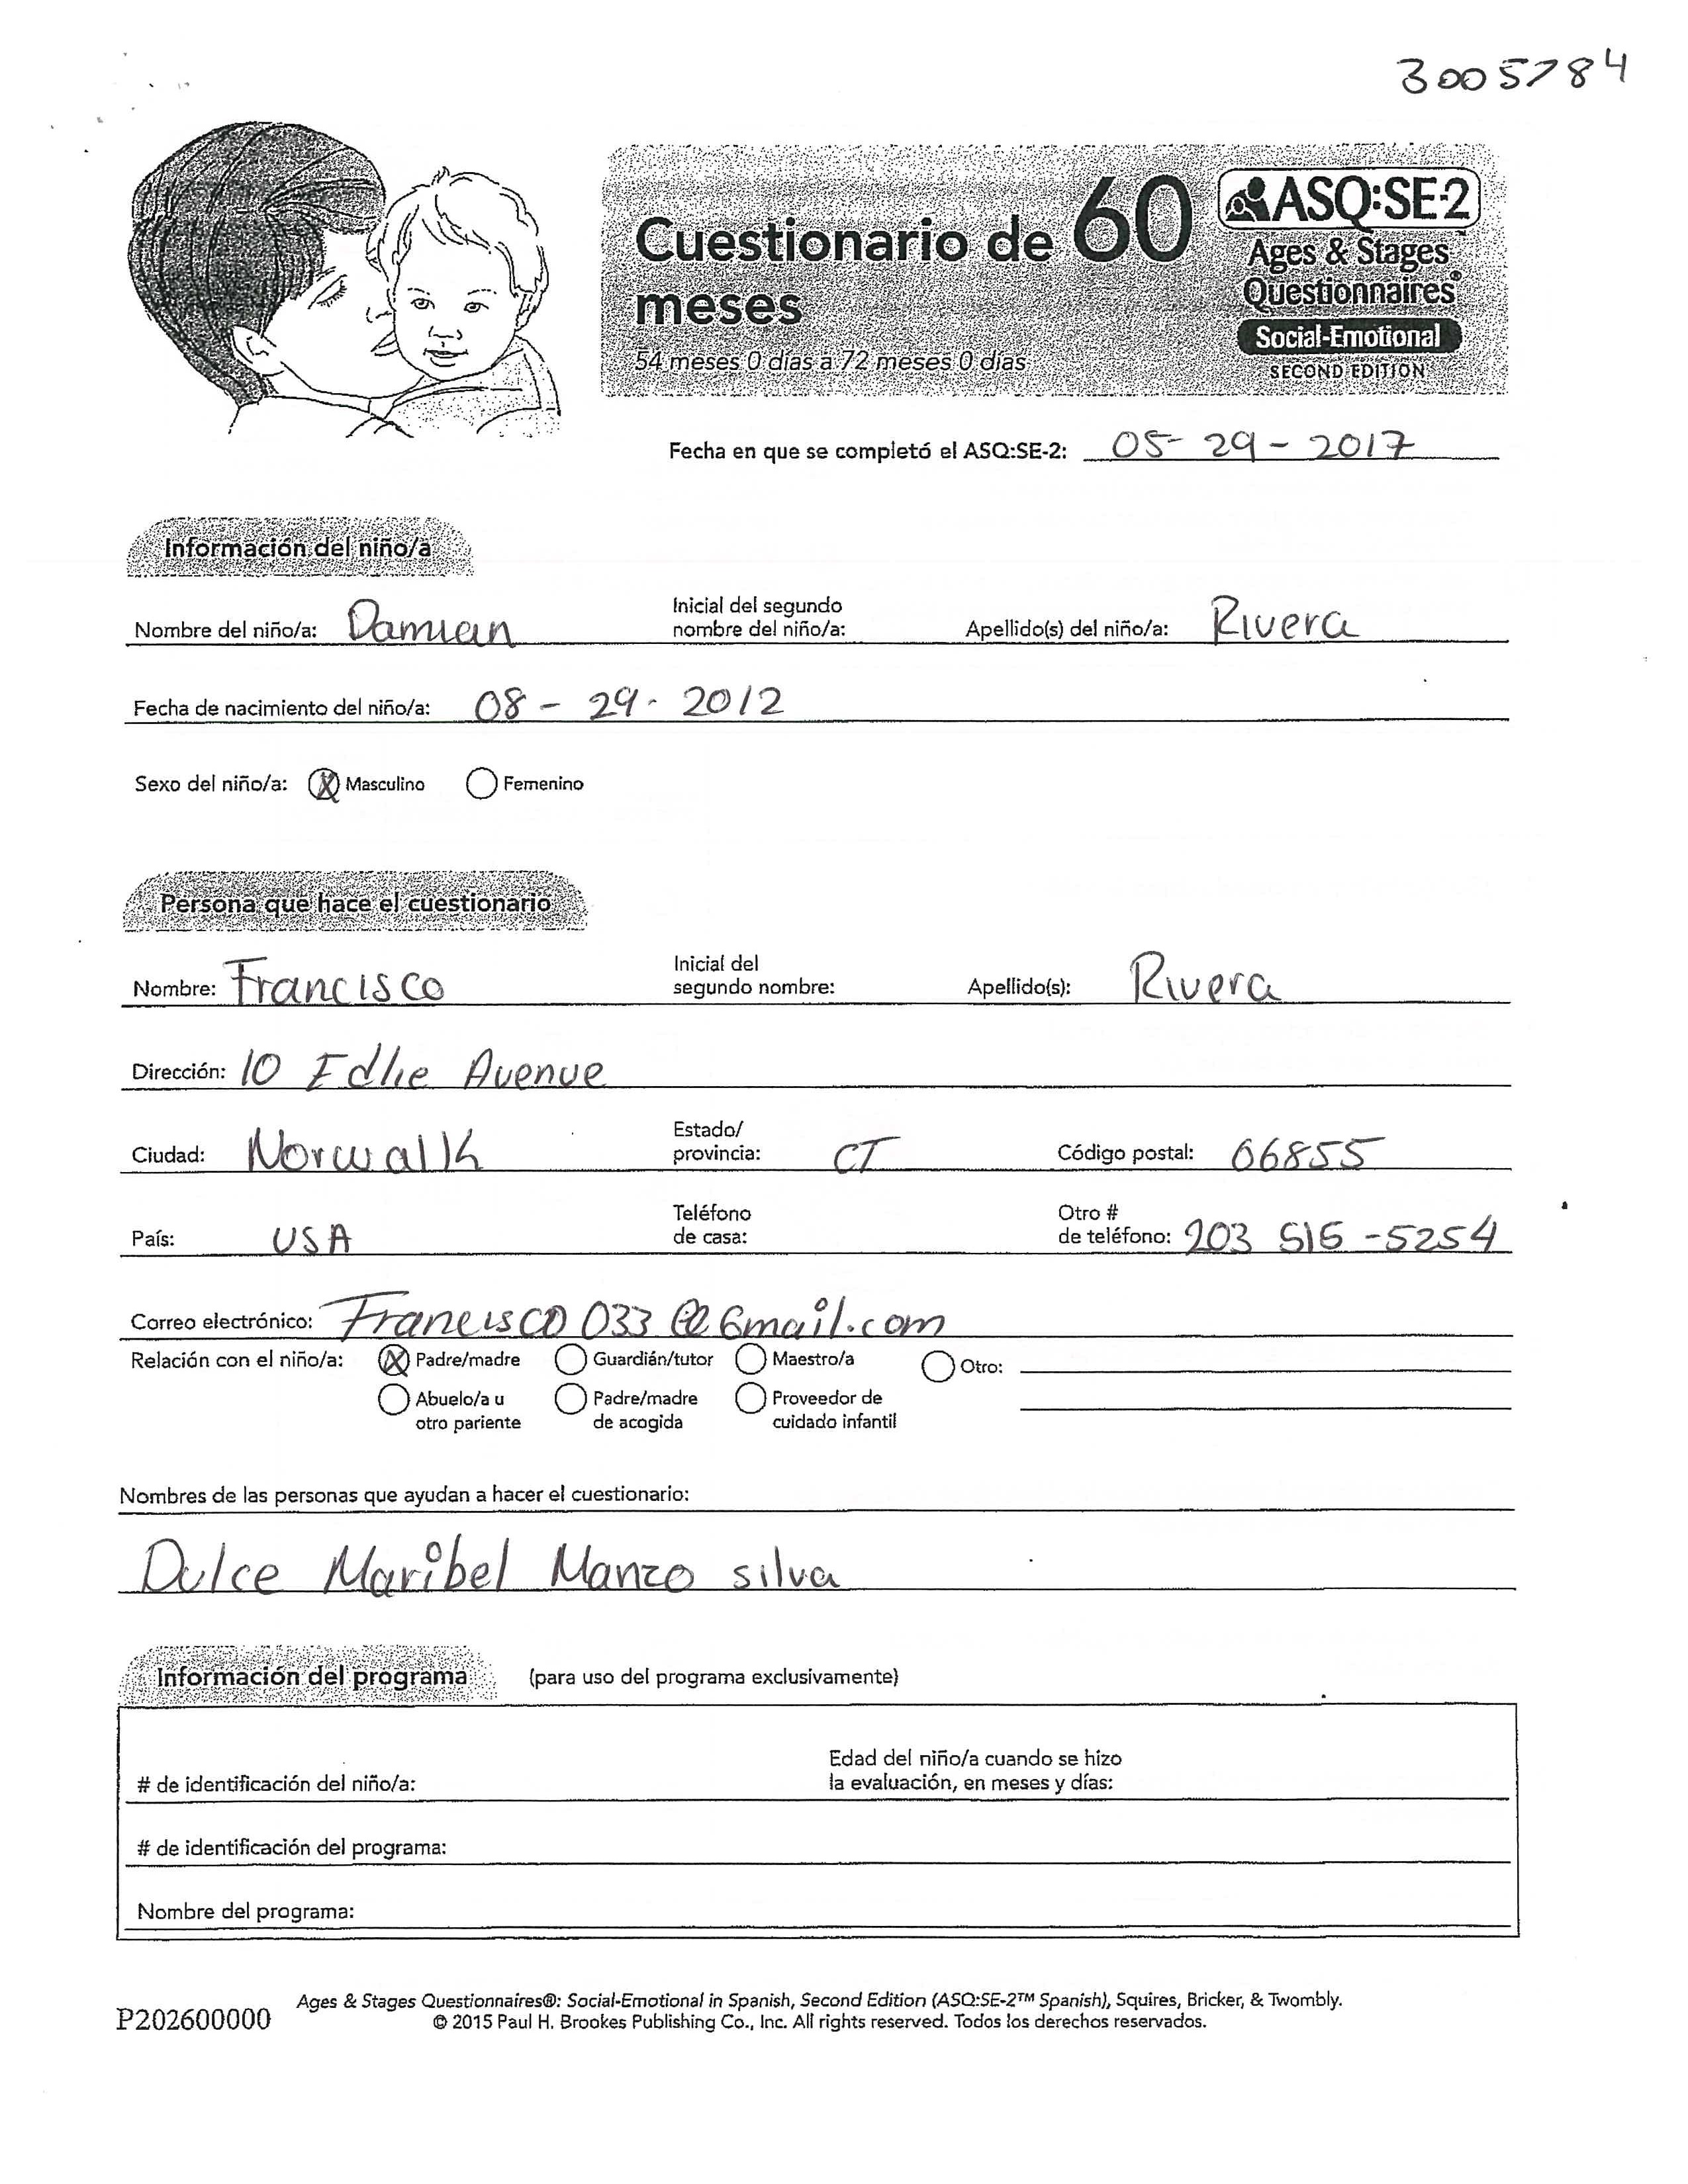 3005784
Cuestionario de 60
meses
54 meses 0 días a 72 meses 0 días
ASQ:SE-2™
Ages & Stages
Questionnaires®
Social-Emotional
SECOND EDITION
Fecha en que se completó el ASQ:SE-2: 05-29-2017
Información del niño/a
Nombre del niño/a: Damian Inicial del segundo nombre del niño/a: Apellido(s) del niño/a: Rivera
Fecha de nacimiento del niño/a: 08-29-2012
Sexo del niño/a: Masculino Femenino
Persona que hace el cuestionario
Nombre: Francisco Inicial del segundo nombre: Apellido(s): Rivera
Dirección: 10 Edlie Avenue
Ciudad: Norwalk Estado/provincia: CT Código postal: 06855
País: USA Teléfono de casa: Otro # de teléfono: 203 516-5254
Correo electrónico: Francisco033@Gmail.com
Relación con el niño/a: Padre/madre Guardián/tutor Maestro/a Otro:
Abuelo/a u otro pariente Padre/madre de acogida Proveedor de cuidado infantil
Nombres de las personas que ayudan a hacer el cuestionario:
Dulce Maribel Manzo silva
Información del programa (para uso del programa exclusivamente)
# de identificación del niño/a: Edad del niño/a cuando se hizo la evaluación, en meses y días:
# de identificación del programa:
Nombre del programa:
P202600000
Ages & Stages Questionnaires®: Social-Emotional in Spanish, Second Edition (ASQ:SE-2™ Spanish), Squires, Bricker, & Twombly.
© 2015 Paul H. Brookes Publishing Co., Inc. All rights reserved. Todos los derechos reservados.